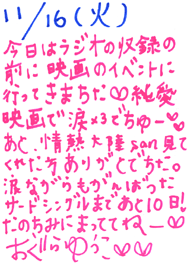 11/16(火)
今日はラジオの収録の
前に映画のイベントに
行ってきまちた♡純愛
映画で涙×3でちゅー♡
あと、情熱大陸san見て
くれた方ありがとでちた。
涙ながらもがんばった
サードシングルまであと10日!
たのちみにまっててねー♡
おぐらゆうこ♡♡